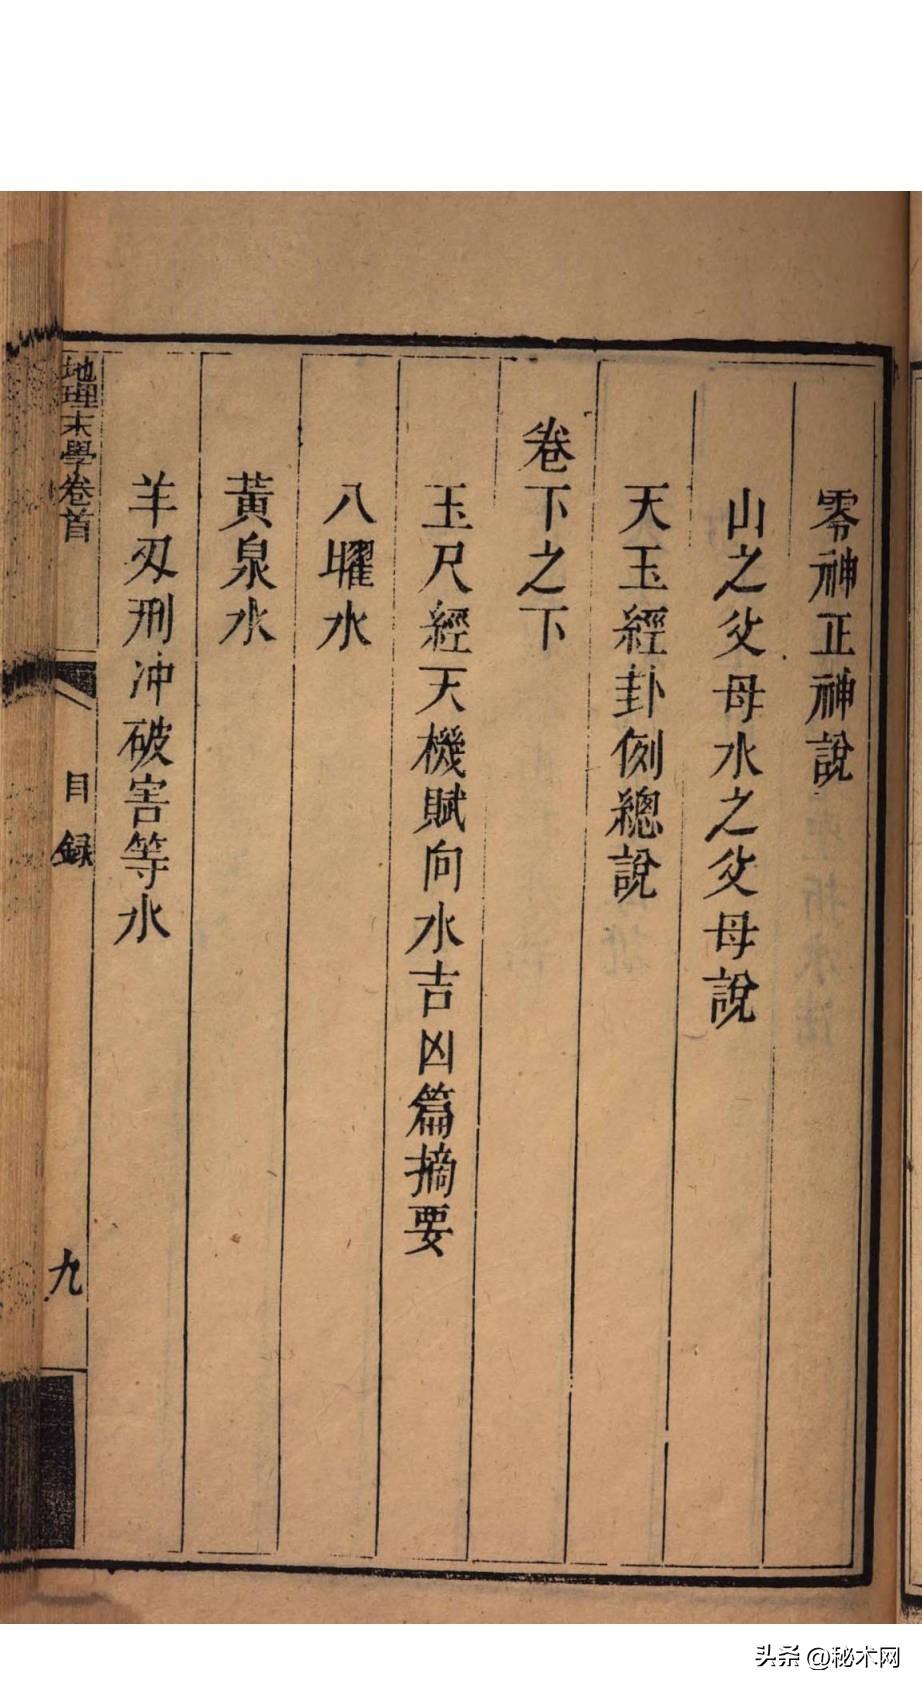 零神正神說
山之父母水之父母說
天玉經卦例總說
卷下之下
玉尺經天機賦向水吉凶篇摘要
八曜水
黃泉水
羊刄刑冲破害等水
地理末學卷首
目録
九
头条 @秘术网